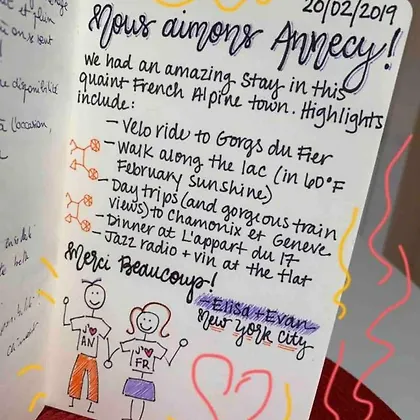 20/02/2019
Nous aimons Annecy!
we had an amazing stay in this
quaint French Alpine town. Highlights
include:
- Velo ride to Gorgs du Fier
- Walk along the lac (in 60°F
February Sunshine)
- Day trips (and gorgeous train
views) to Chamonix et Geneve
- Dinner at L'appart du 17
- Jazz radio + vin at the flat
Merci Beaucoup!
- Elisa + Evan
New York City
J'♥
AN
J'♥
FR
et plein
disponibilité
à l'occasion,